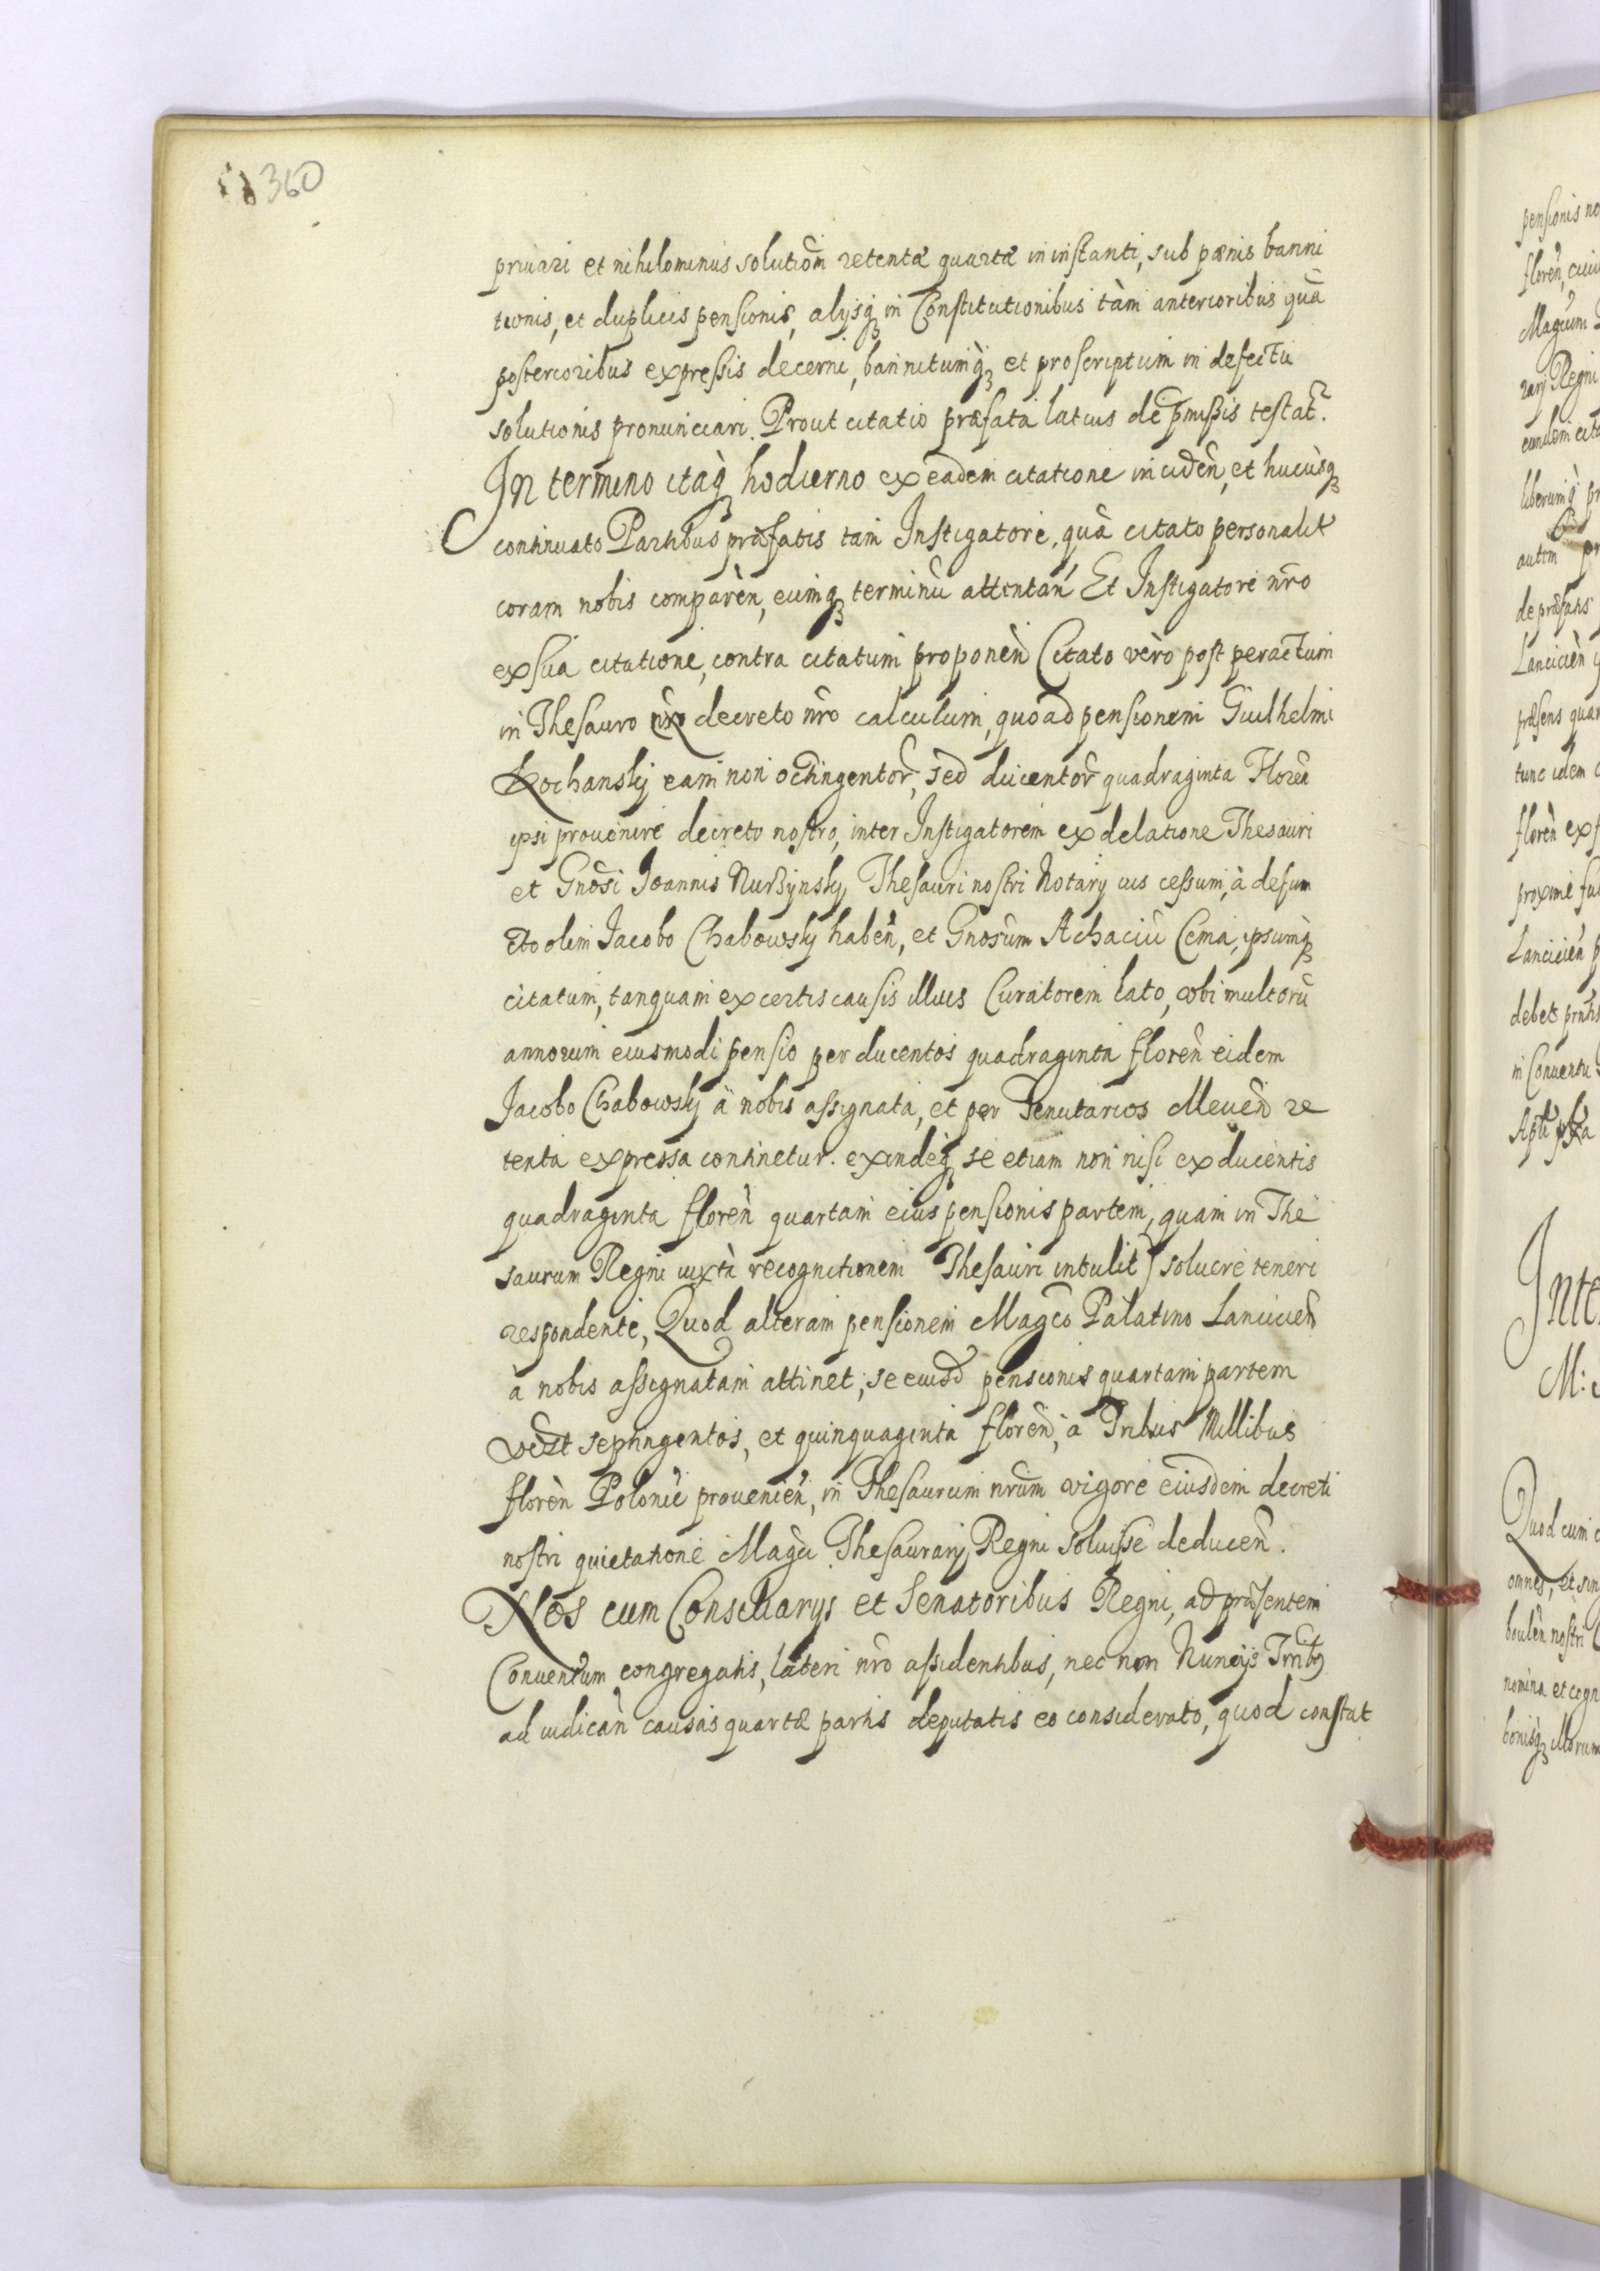 360
priuari et nihilominus solutiōm retentæ quartæ in instanti, sub pœnis banni
tionis, et duplicis pensionis, alijsq3 in Constitutionibus tàm anterioribus quā
posterioribus expressis decerni, bannitumq3 et proscriptum in defectu
solutionis pronunciari. Prout citatio præfata latius de p̄missis testat̄.
In termino itaq3 hodierno ex eadem citatione inciden̄, et hucùsq3
continuato Partibus præfatis tam Instigatore, quā citato personalit̄
coram nobis comparen̄, eumq3 terminū attentan̄ Et Instigatore nr̄o
ex sua citatione, contra citatum proponen̄ Citato vero post peractum
in Thesauro nr̄o decreto nr̄o calculum, quoad pensionem Guilhelmi
Kochansky eam non octingentor̄, sed ducentor̄ quadraginta Floren̄
ipsi prouenire decreto nostro, inter Instigatorem ex delatione Thesauri
et Gnōsi Joannis Nurzynsky Thesauri nostri Notarij ius cessum, à defun
cto olim Jacobo Chabowsky haben̄, et Gnosum Achaciū Cema, ipsumq3
citatum, tanquam ex certis causis illius Curatorem lato, vbi multorū
annorum eiusmodi pensio per ducentos quadraginta floren̄ eidem
Jacobo Chabowsky à nobis assignata, et per Tenutarios Meuen̄ re
tenta expressa continetur. exindeq3 se etiam non nisi ex ducentis
quadraginta floren̄ quartam eius pensionis partem, quam in The
saurum Regni iuxtà recognitionem Thesauri intulit) soluere teneri
respondente, Quod alteram pensionem Magcō Palatino Lancicien̄
à nobis assignatam attinet, se eiusd̄ pensionis quartam partem
videlt septingentos, et quinquaginta floren̄, à Tribus Millibus
floren̄ Polonic̄ prouenien̄, in Thesaurum nr̄um vigore eiusdem decreti
nostri quietatione Magci Thesaurarij Regni soluisse deducen̄.
Nos cum Consiliarijs et Senatoribus Regni, ad præsentem
Conuentum congregatis, lateri nr̄o assidentibus, nec non Nuncijs Trr̄ib9
ad iudican̄ causas quartæ partis deputatis eo considerato, quod constat
pensionis no
floren̄, cuiu
Magcum
rarij Regni
eundem cita
liberumq3 pr
autem pr
de præfatis
Lancicien̄
præsens quar
tunc idem
floren̄ ex
proxime fu
Lancicien̄ p
debet
in Conuentu
Inte
M:
Quod cum
omnes, et sin
nostri
nomina et cogn
bonisq3